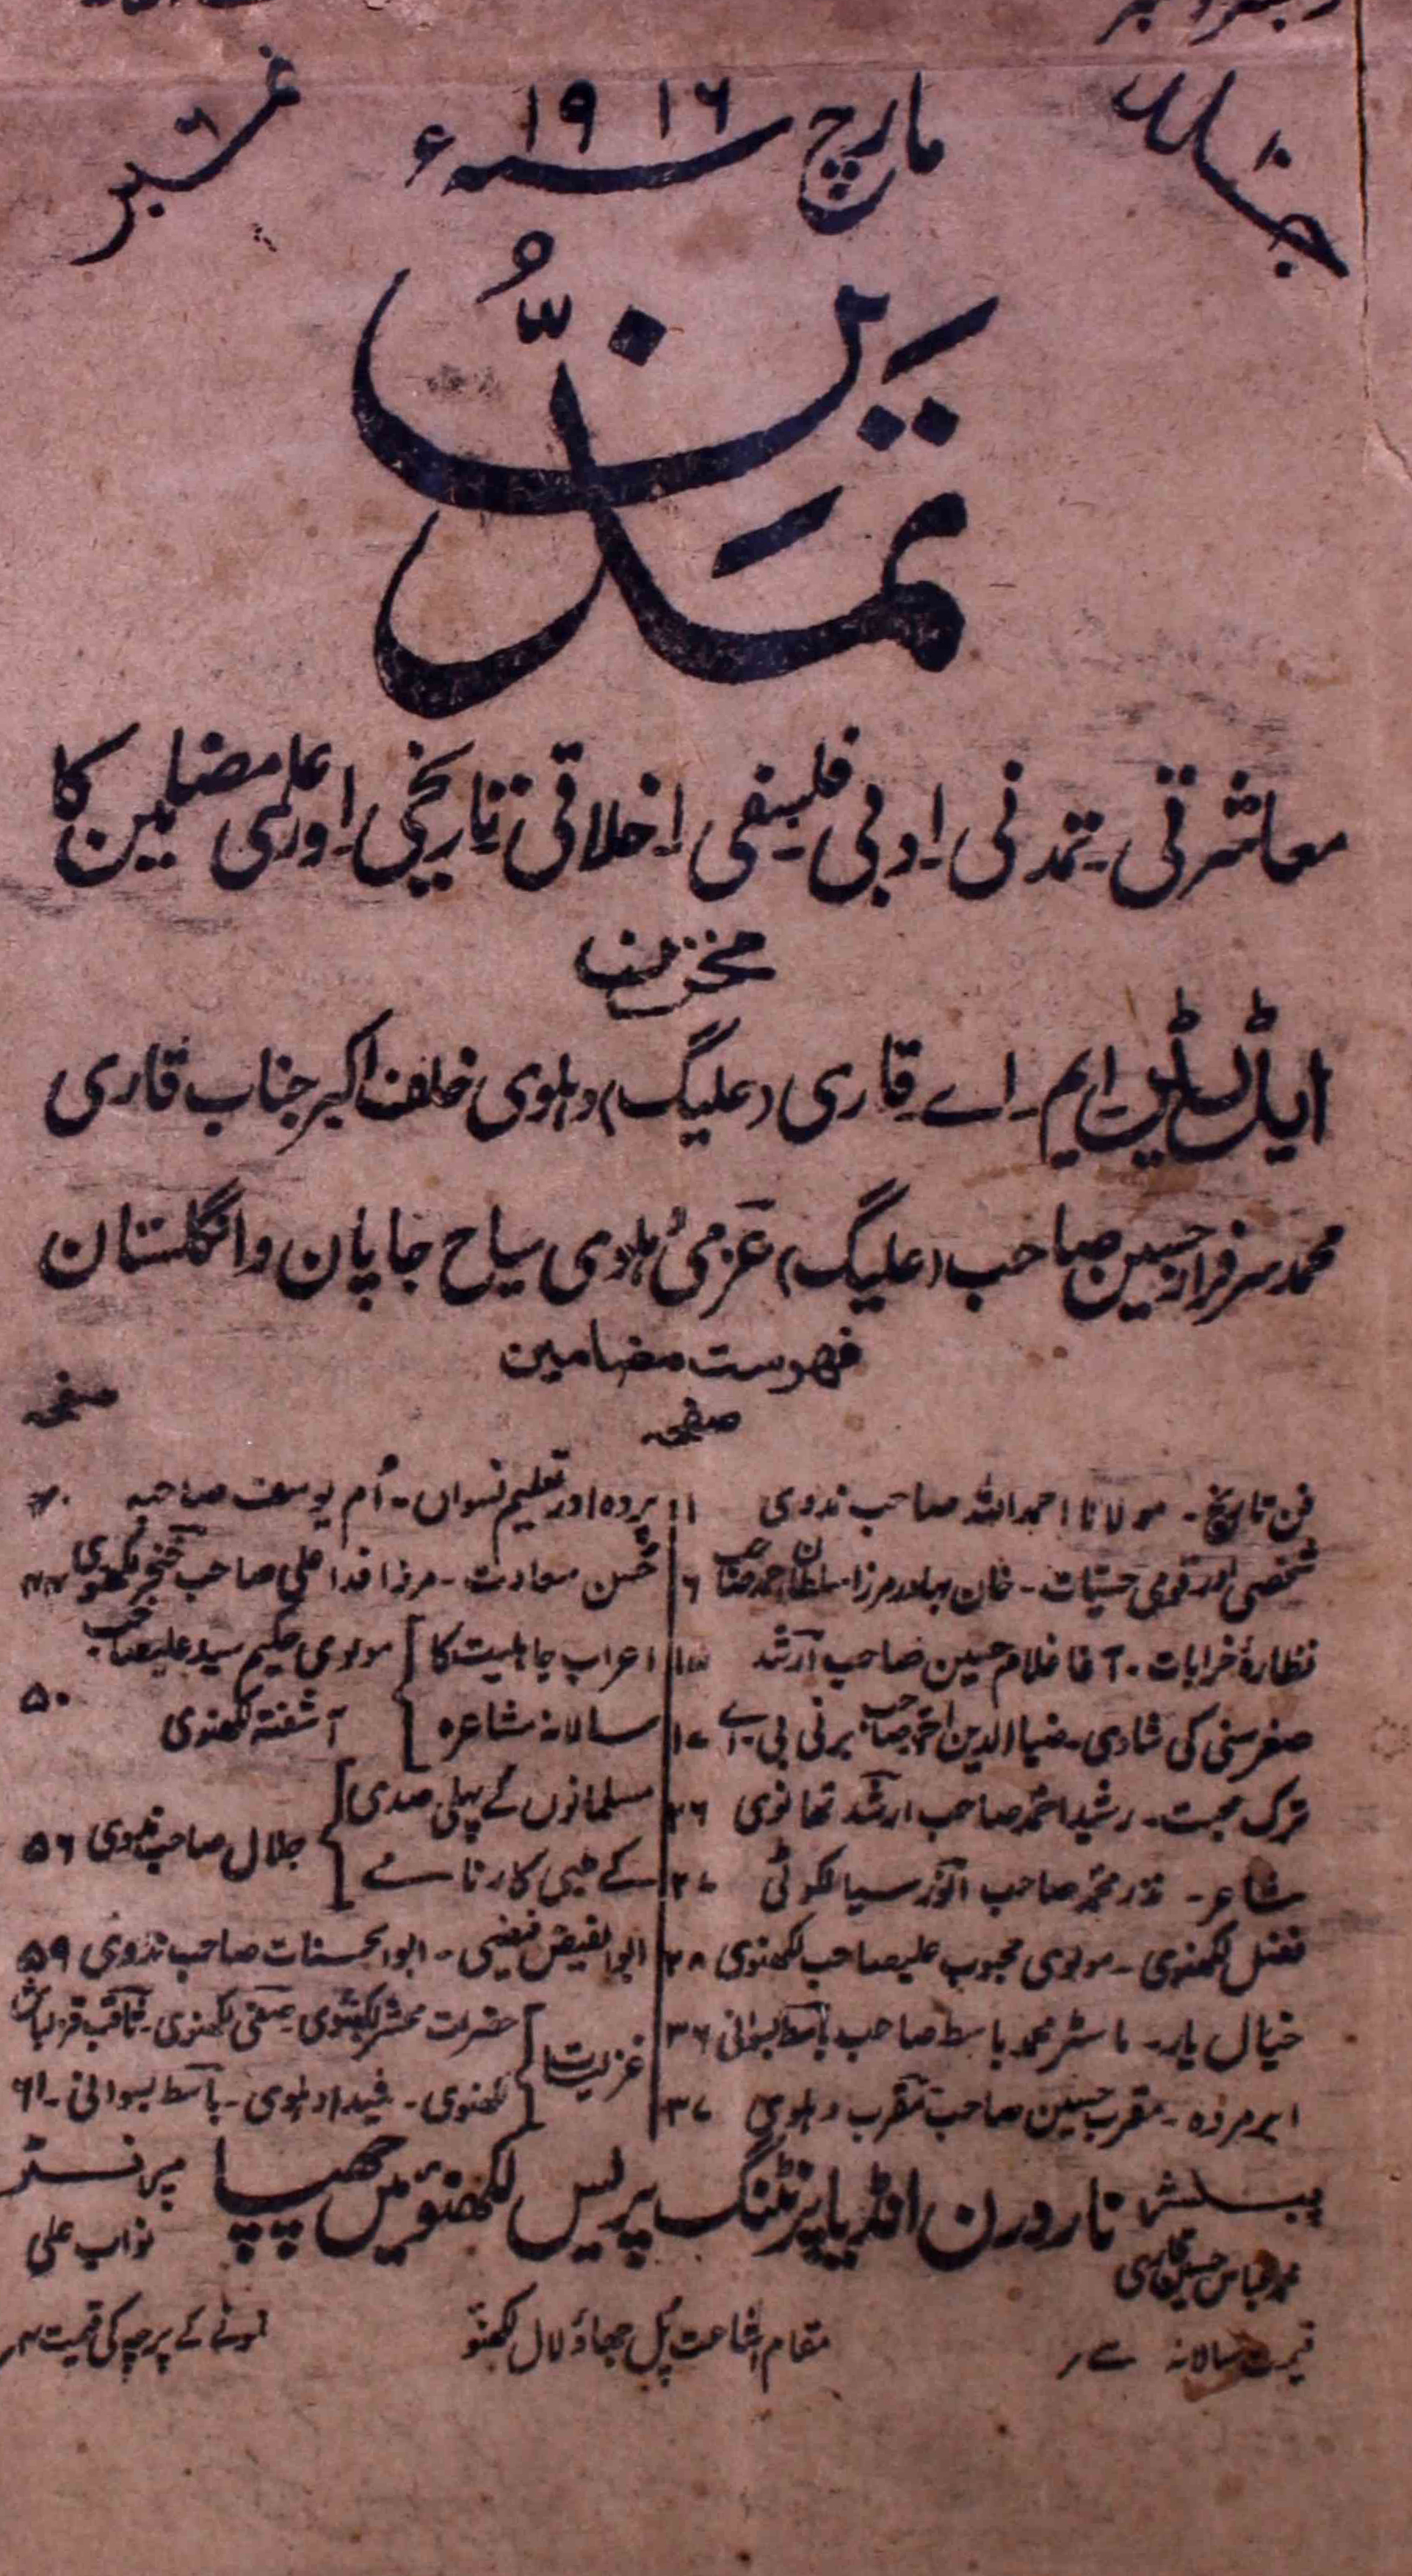 جلد ۱۰
مارچ ۱۹۱۶ سنہ ء
نمبر ۶
تمدّن
معاشرتی۔ تمدنی۔ ادبی۔ فلسفی۔ اخلاقی۔ تاریخی۔ اور علمی مضامین کا
مخزن
ایڈیٹر ایم۔ اے۔ قاری (علیگ) دہلوی خلف اکبر جناب قاری
محمد سرفراز حسین صاحب (علیگ) عزمی دہلوی سیاح جاپان و انگلستان
فہرست مضامین
صفحہ
فن تاریخ۔ مولانا احمد اللہ صاحب ندوی ۱
شخصی اور قومی حسیات۔ خان بہادر مرزا سلطان احمد صاحب ۶
نظارۂ خرابات۔ آغا غلام حسین صاحب ارشد
صغر سنی کی شادی۔ ضیاالدین احمد صاحب برنی بی۔ اے
ترک محبت۔ رشید احمد صاحب ارشد تھانوی ۲۶
شاعر۔ نذر محمد صاحب انور سیالکوٹی ۲۷
فضل لکھنوی۔ مولوی محبوب علیصاحب لکھنوی ۲۸
خیال یار۔ ماسٹر محمد باسط صاحب باسط بسوانی ۳۶
ابر مردہ۔ مقرب حسین صاحب مقرب دہلوی ۳۷
صفحہ
پردہ اور تعلیم نسواں۔ اُم یوسف صاحبہ ۴۰
حُسن معادت۔ مرزا فدا علی صاحب خنجر لکھنوی ۴۴
اعراب جاہلیت کا سالانہ مشاعرہ } مولوی حکیم سید علیصاحب آشفتہ لکھنوی ۵۰
مسلمانوں کے پہلی صدی کے طبی کارنامے } جلال صاحب ندوی ۵۶
ابوالفیض فیضی۔ ابوالحسنات صاحب ندوی ۵۹
غزلیات } حضرت محشر لکھنوی۔ صفی لکھنوی۔ ثاقب قزلباش لکھنوی۔ شیدا دہلوی۔ باسط بسوانی۔ ۶۱
پبلشر محمد عباس حسین قاری
ناردرن انڈیا پرنٹنگ پریس لکھنؤ میں چھپا
پرنٹر نواب علی
قیمت سالانہ
مقام اشاعت پل جھاؤ لال لکھنؤ
نمونے کے پرچہ کی قیمت ۴؍